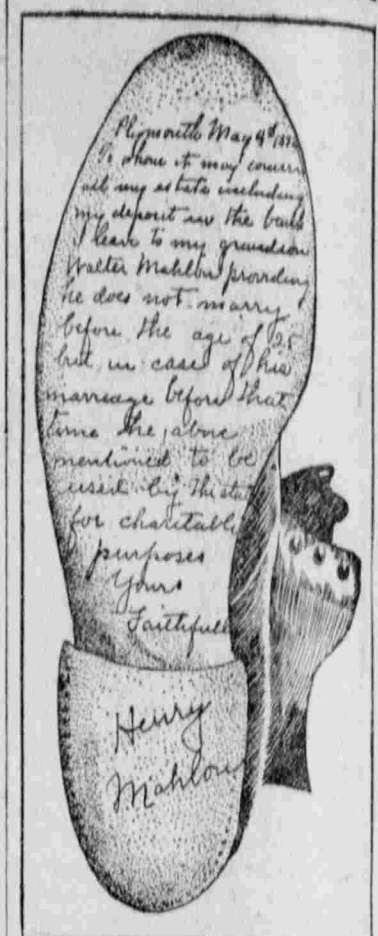 Plymouth May 4th
To whom it may concern
all my estate including
my deposit in the bank
I leave to my grandson
Walter Mahlon providing
he does not marry
before the age of 25
but in case of his
marriage before that
time the above
mentioned to be
used by the state
for charitable
purposes
Yours
Faithfully
Henry
Mahlon